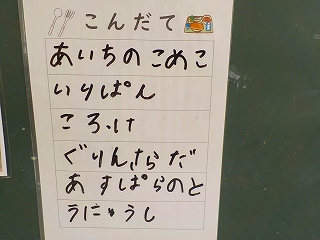 こんだて
あいちのこめこ
いりぱん
ころっけ
ぐりんさらだ
あすぱらのと
うにゅうし